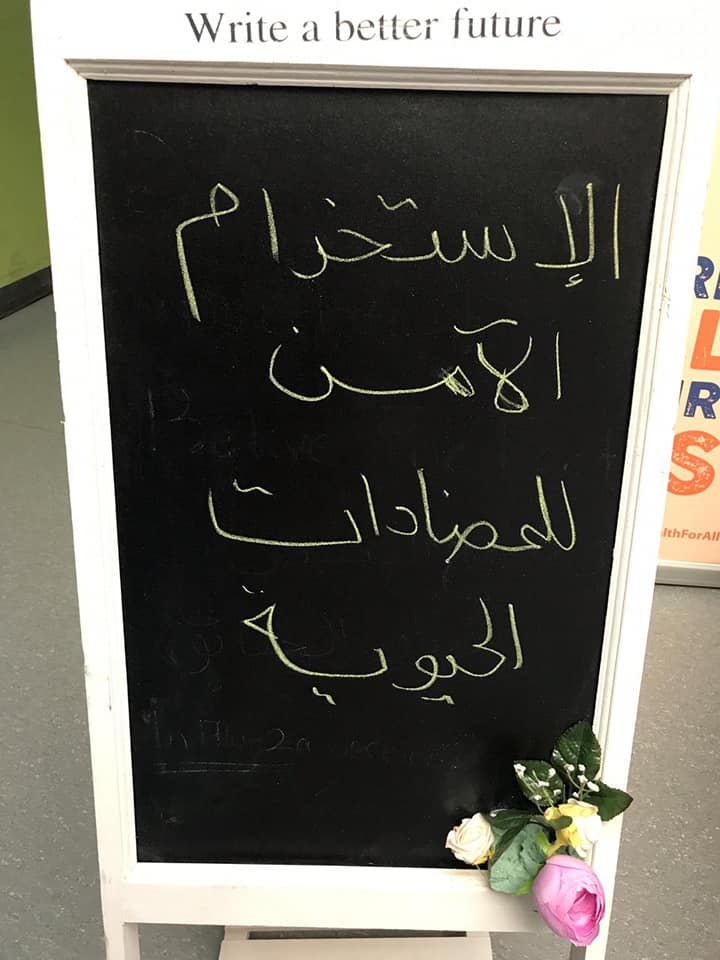 Write a better future
الإستخدام
الآمن
للمضادات
الحيوية
lthForAll